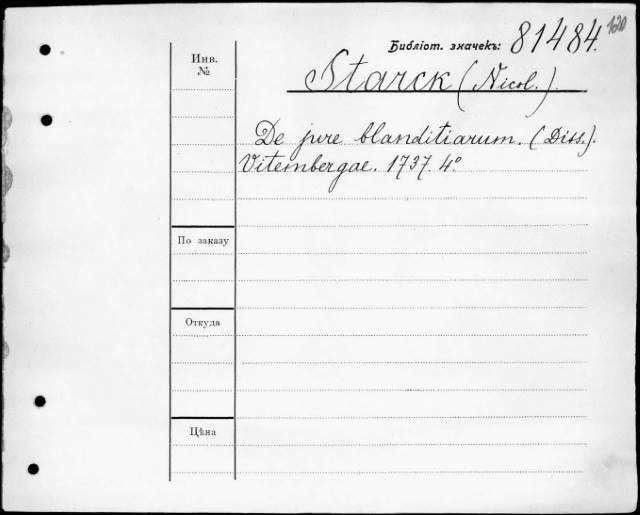 120
Библіот. значекъ: 81484.
Инв.
№
Starck (Nicol.).
De jure blanditiarum. (Diss.).
Vitembergae. 1737. 4°
По заказу
Откуда
Цѣна